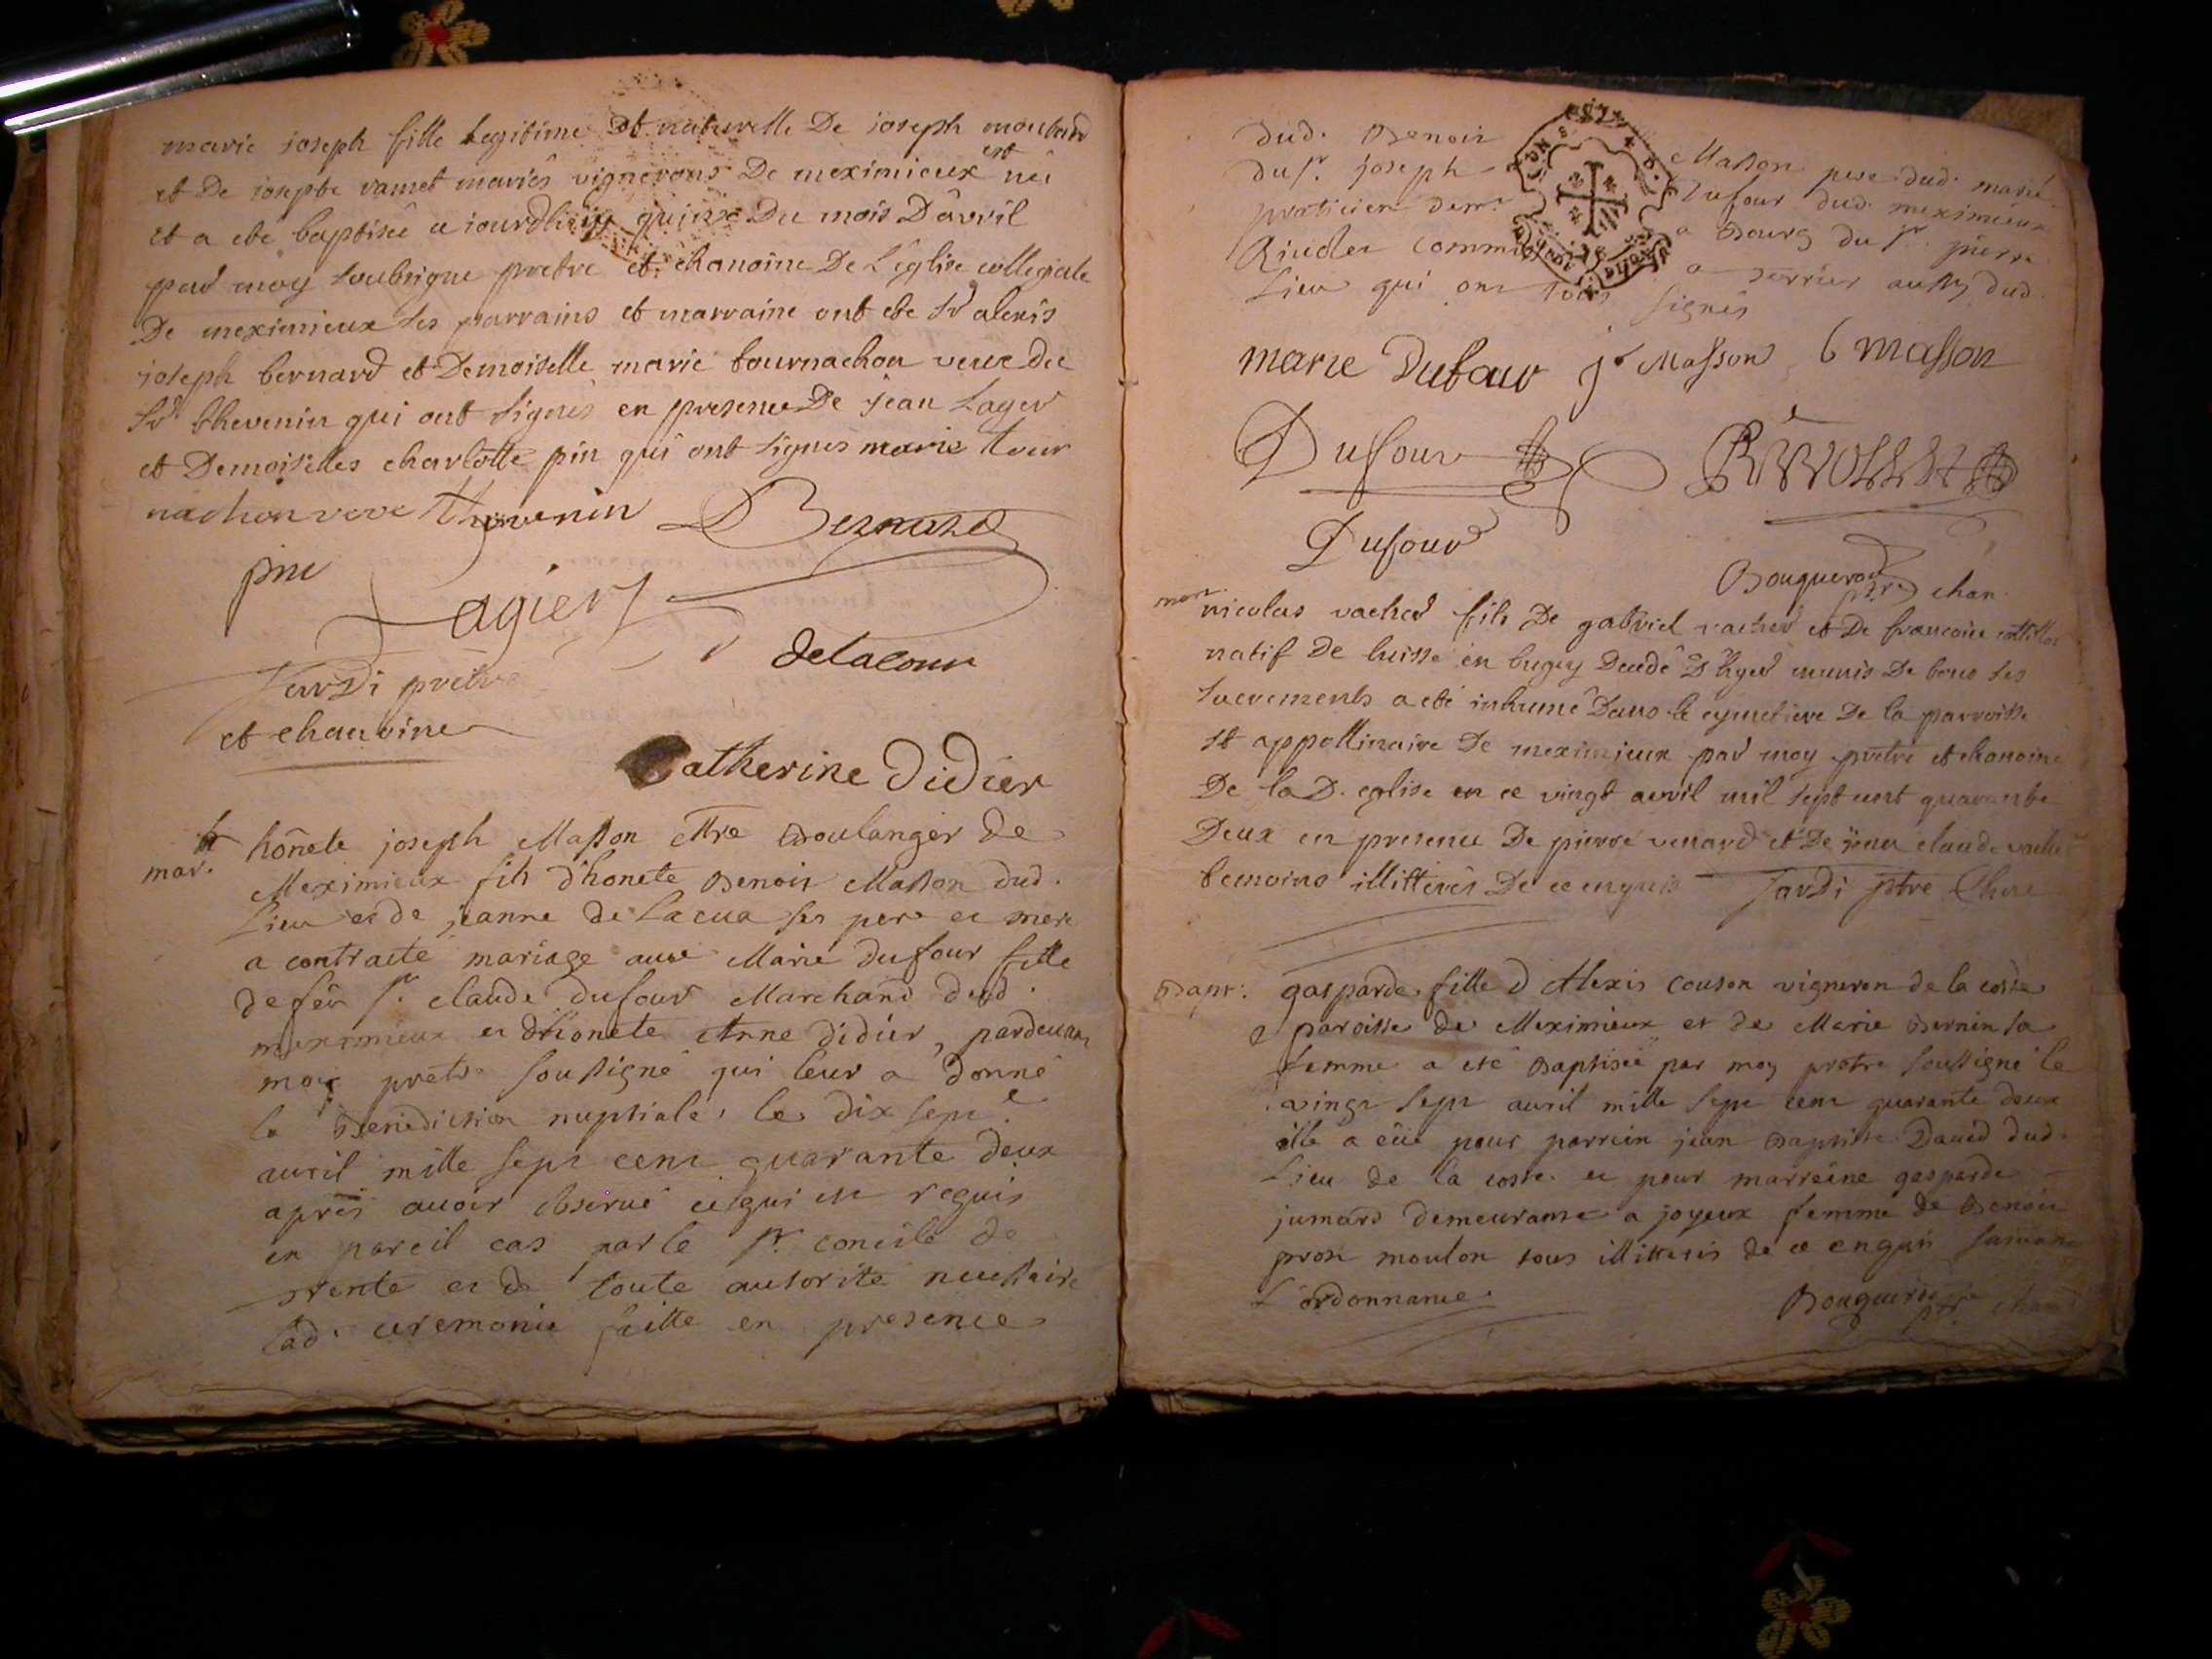 marie joseph fille Legitime et naturelle De joseph moutard
et De josepte ramet mariés vignerons De meximieux est née
et a ete baptisée ce jourdhuy quinze Du mois D'avril
par moy soubsigne pretre et chanoine De L'eglise collegiale
De meximieux ses parrains et marraine ont ete Sr alexis
joseph bernard et Demoiselle marie tournachon veuve du
Sr thevenin qui ont signés en presence De jean Lager
et Demoiselles charlotte pin qui ont signés marie tour
nachon veve thevenin Bernard
pin
Lagier
delacour
Jardi prêtre
et chanoine
Catherine Didier
mar.
honete joseph Masson Mre Boulanger de
Meximieux fils d'honete Benoit Masson dud.
Lieu et de jeanne de Lacua ses pere et mere
a contracte mariage avec Marie dufour fille
de feu Sr. claude dufour Marchand dud.
meximieux et d'honete Anne didier, pardevant
moy pretre soussigné qui leur a donné
la Benediction nuptiale, le dix sept e
avril mille sept cent quarante deux
aprés avoir observé ce qui est requis
en pareil cas par le St. concile de
trente et de toute autorité necessaire
lad. ceremonie faitte en presence
dud. Benoit Masson pere dud. marié
du Sr. joseph Dufour dud. meximieux
praticien demt. a Bourg du Sr. pierre
Lieu qui ont tous signés
marie Dufour jh Masson b masson
Dufour
Dufour
Bouquerod ptre chan.
mort
nicolas vacher fils De gabriel vacher et De francoise
natif De luisse en bugey Decedé D'hyer munis De tous ses
sacrements a eté inhumé Dans le cymetiere De la parroisse
st appollinaire De meximieux par moy prêtre et chanoine
De la D. eglise en ce vingt avril mil sept cent quarante
Deux en presence De pierre venard et De jean claude vacher
temoins illitterés De ce enquis Jardi ptre Chne
Bapt.
gasparde fille d'Alexis couson vigneron de la coste
paroisse de Meximieux et de Marie Bernin sa
femme a eté Baptisée par moy prétre soussigné le
vingt sept avril mille sept cent quarante deux
elle a eüe pour parrein jean Baptiste David dud.
Lieu de la coste et pour marreine gasparde
jumard demeurante a joyeux femme de Benoit
prost moulon tous illitterés de ce enquis suivant
L'ordonnance.
Bouquerod ptr. chan.